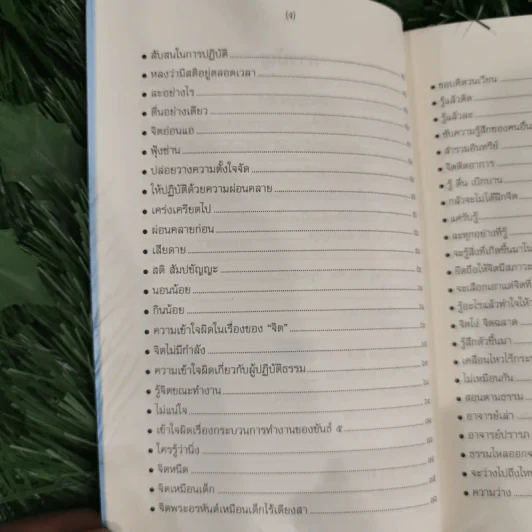 (๔)
• สับสนในการปฏิบัติ
• หลงว่ามีสติอยู่ตลอดเวลา
• ละอย่างไร
• ตื่นอย่างเดียว
• จิตอ่อนแอ
• ฟุ้งซ่าน
• ปล่อยวางความตั้งใจจัด
• ให้ปฏิบัติด้วยความผ่อนคลาย
• เคร่งเครียดไป
• ผ่อนคลายก่อน
• เสียดาย
• สติ สัมปชัญญะ
• นอนน้อย
• กินน้อย
• ความเข้าใจผิดในเรื่องของ "จิต"
• จิตไม่มีกำลัง
• ความเข้าใจผิดเกี่ยวกับผู้ปฏิบัติธรรม
• รู้จิตขณะทำงาน
• ไม่แน่ใจ
• เข้าใจผิดเรื่องกระบวนการทำงานของขันธ์ ๕
• ใครรู้ว่านิ่ง
• จิตหนีด
• จิตเหมือนเด็ก
• จิตพระอรหันต์เหมือนเด็กไร้เดียงสา
• ชอบคิดวนเวียน
• รู้แล้วคิด
• รู้แล้วละ
• ซับความรู้สึกของคนอื่น
• สำรวมอินทรีย์
• จิตติดอาการ
• รู้ ตื่น เบิกบาน
• กลัวจะไม่ได้ฝึกจิต
• แค่รับรู้
• ละทุกอย่างที่รู้
• จะรู้สึกที่เกิดขึ้นมาใน
• ยึดถือให้จิตมีสภาวะ
• จะเลือกเอาแต่จิตที่
• รู้อะไรแล้วทำใจให้ว
• จิตโง่ จิตฉลาด
• รู้สึกตัวขึ้นมา
• เคลื่อนไหวไร้กระ
• ไม่เหมือนกัน
• สอนตามธรรม
• อาจารย์เล่า
• อาจารย์ปรารภ
• ธรรมไหลออกจ
• จะว่างไปถึงไห
• ความว่าง